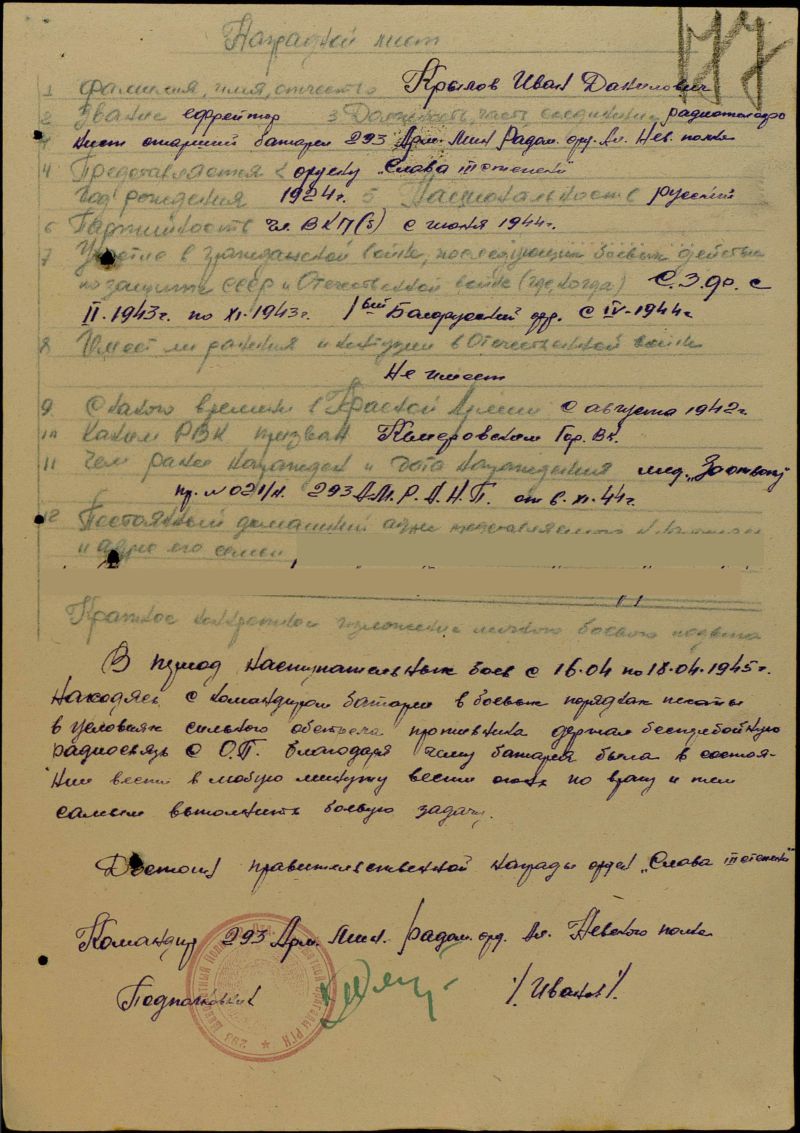 177
Наградной лист
1 Фамилия, имя, отчество Крылов Иван Данилович
2 Звание ефрейтор 3 Должность, часть соединения радиотелегра
фист старший батареи 293 Арм. Мин. Радом. орд. Ал. Нев. полка
4 Представляется к ордену "Слава III степени
год рождения 1924г. 5 Национальность русский
6 Партийность чл. ВКП(б) с июня 1944г.
7 Участие в гражданской войне, последующим боевым действ
по защите СССР и Отечественной войне (где, когда) С.З.фр. с
II.1943г. по XI.1943г. 1ый Белорусский фр. с IV-1944г
8 Имеет ли ранения и контузии в Отечественной войне
Не имеет
9 С какого времени в Красной Армии с августа 1942г.
10 Каким РВК призван Кемеровским Гор. Вк.
11 Чем ранее награжден и дата награждения мед. "За отвагу"
пр. № 021/н. 293 А.М.Р.А.Н.П. от 6.XI.44г.
12 Постоянный домашний адрес представляемого к
и адрес его семьи
Краткое конкретное изложение личного боевого подвига
В период наступательных боев с 16.04 по 18.04.1945г.
находясь с командиром батареи в боевых порядках пехоты
в условиях сильного обстрела противника держал бесперебойную
радиосвязь с О.П. благодаря чему батарея была в состоя-
нии вести в любую минуту вести огонь по врагу и тем
самым выполнить боевую задачу.
Достоин правительственной награды орден "Слава III степени"
Командир 293 Арм. Мин. Радом. орд. Ал. Невского полка
Подполковник /Иванов/.
293 Минометный Полк РГК